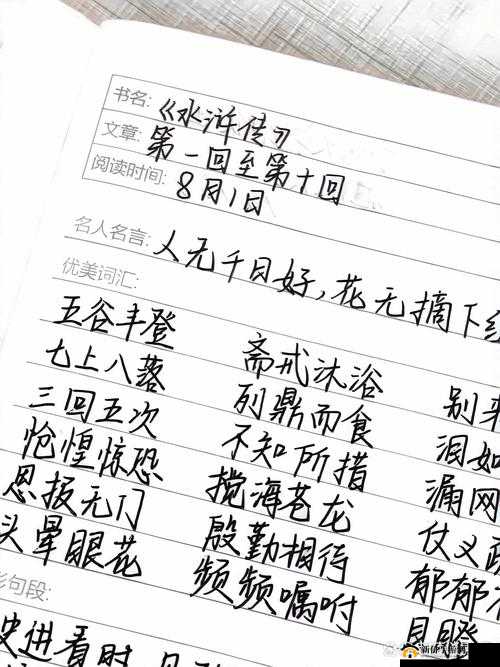 书名:《水浒传》
文章: 第一回至第十回
阅读时间: 8月1日
名人名言: 人无千日好,花无摘下红
优美词汇:
五谷丰登 斋戒沐浴 别来
七上八落 列鼎而食 泪如
三回五次 不知所措 漏网
怆惶惊恐 搅海苍龙 仗义疏
恩报无门 殷勤相待 郁郁不
头晕眼花 频频嘱咐
句段:
史进看时,见